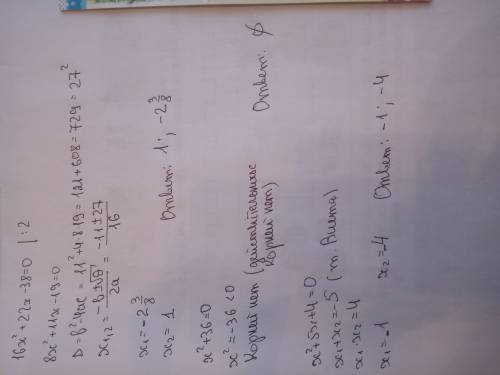 16x²+22x-38=0 | :2
8x²+11x-19=0
D=b²-4ac = 11²+4·8·19=121+608=729=27²
x₁,₂ = (-b±√D)/2a = (-11±27)/16
x₁=-2 3/8
x₂=1 Ответ: 1; -2 3/8
x²+36=0
x²=-36<0
Корней нет (действительных корней нет) Ответ: ∅
x²+5x+4=0
x₁+x₂=-5 (т. Виета)
x₁·x₂=4
x₁=-1 x₂=-4 Ответ: -1; -4